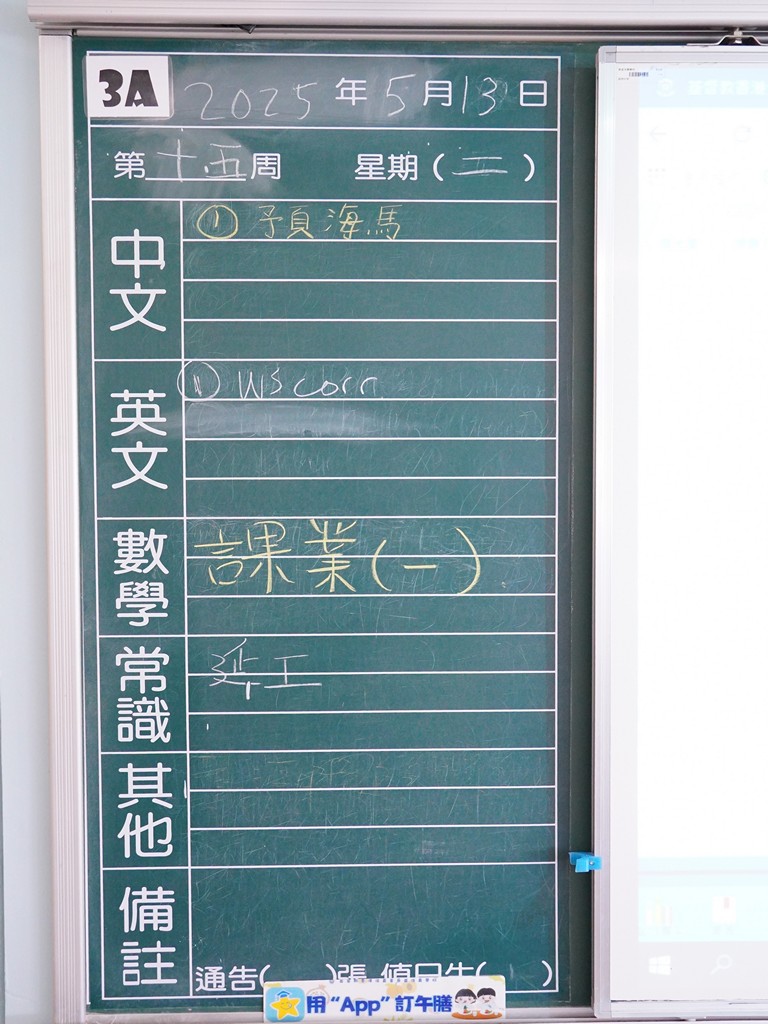 3A 2025年5月13日
第十五周 星期(二)
中文
① 預海馬
英文
① WS corr.
數學
課業(一)
常識
其他
備註
通告( )張 值日生( )
用“App”訂午膳